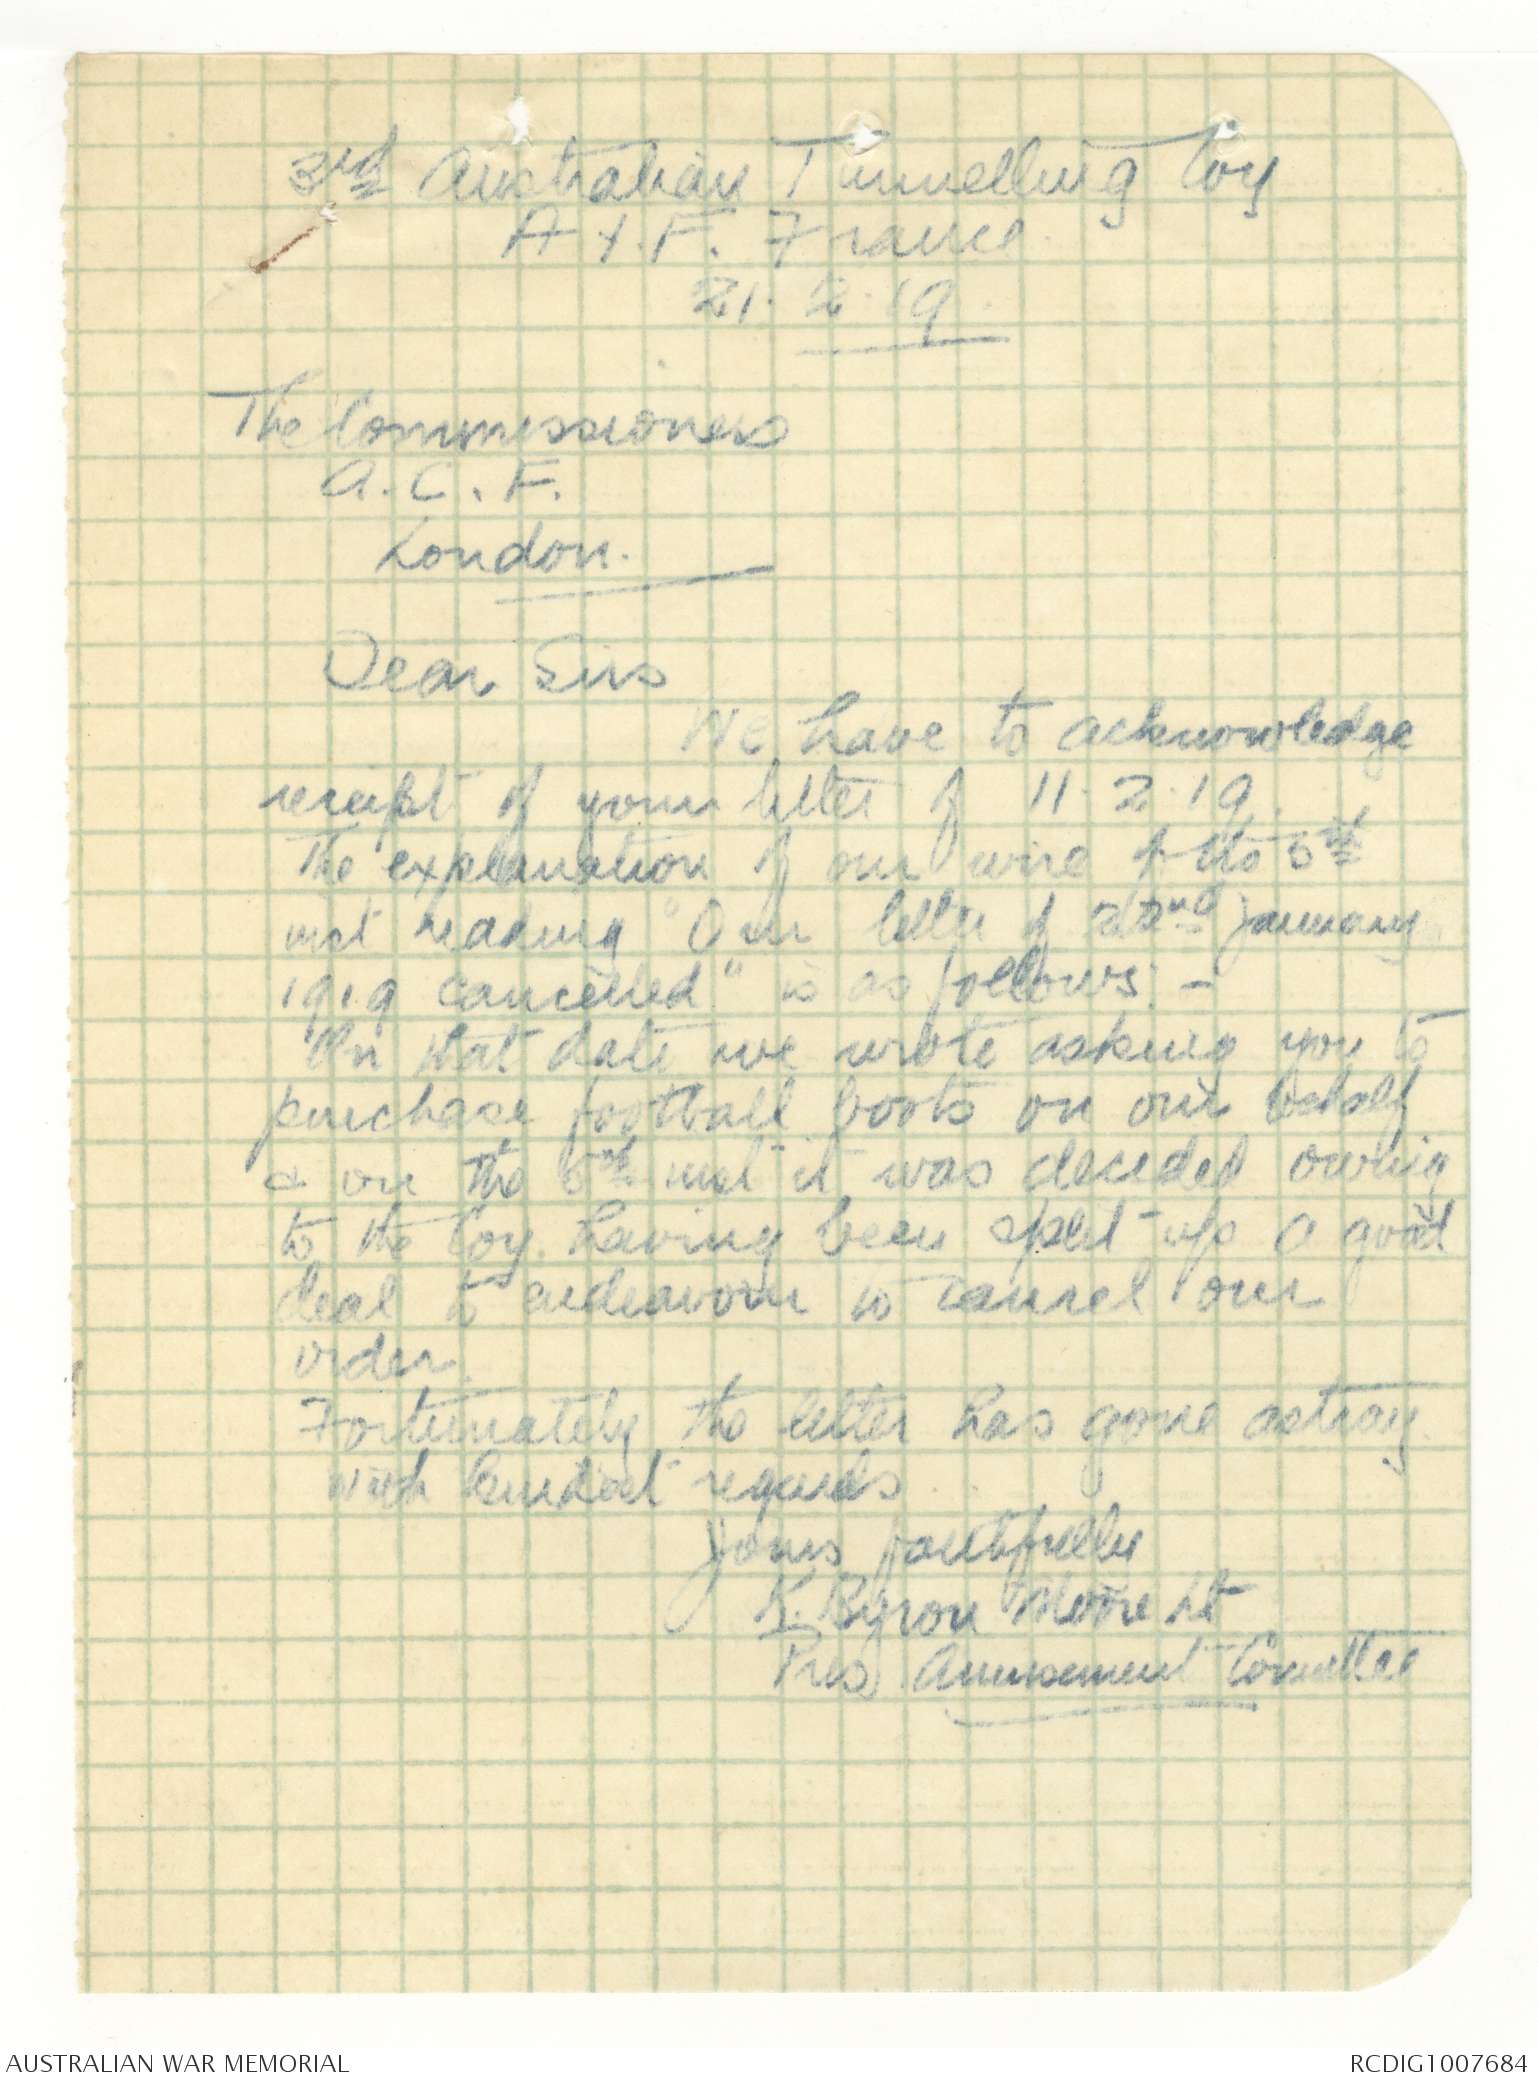 3rd Australian Tunnelling Coy
A.I.F. France
21.2.19.
The Commissioners
A.C.F.
London.
Dear Sirs
We have to acknowledge
receipt of your letter of 11.2.19.
The explanation of our wire of the 5th
inst reading "Our letter of 22nd January
1919 cancelled" is as follows:-
On that date we wrote asking you to
purchase football boots on our behalf
& on the 5th inst it was decided owing
to the Coy. having been split up a good
deal to endeavour to cancel our
order.
Fortunately the letter has gone astray.
With kindest regards.
Yours faithfully
K. Byron Moore Lt
Pres Amusement Committee
AUSTRALIAN WAR MEMORIAL
RCDIG1007684